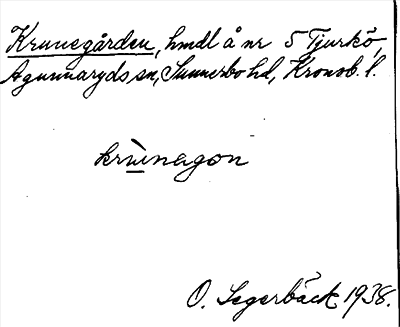 Krunegården, hmdl å nr 5 Tjurkö,
Agunnaryds sn, Sunnerbo hd, Kronob. l.
krùnagon
O. Segerbäck 1938.